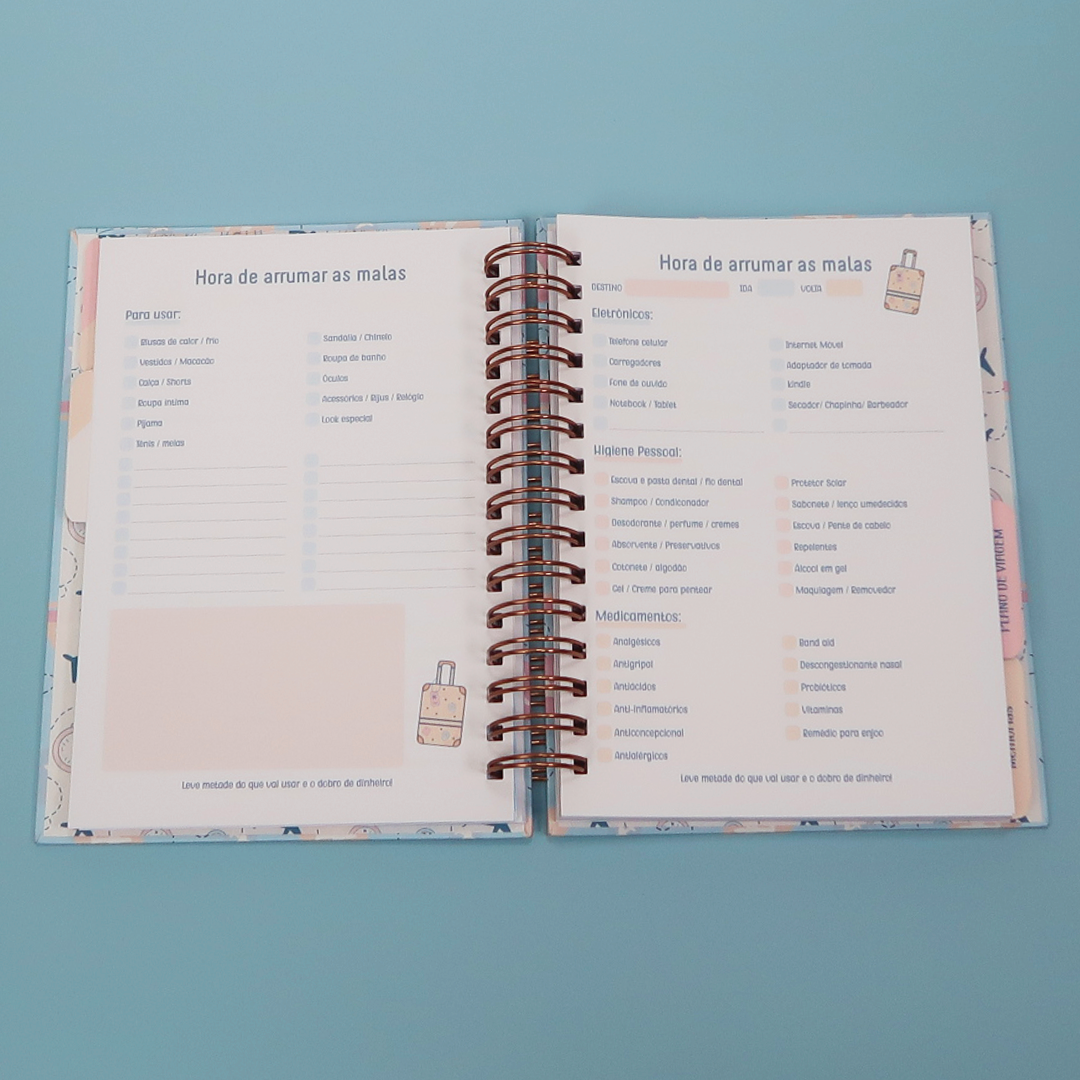 Hora de arrumar as malas
Para usar:
Blusas de calor / frio
Vestidos / Macacão
Calça / Shorts
Roupa íntima
Pijama
Tênis / meias
Sandália / Chinelo
Roupa de banho
Óculos
Acessórios / Bijus / Relógio
Look especial
Leve metade do que vai usar e o dobro de dinheiro!
Hora de arrumar as malas
DESTINO IDA VOLTA
Eletrônicos:
Telefone celular
Carregadores
Fone de ouvido
Notebook / Tablet
Internet Móvel
Adaptador de tomada
kindle
Secador/ Chapinha/ Barbeador
Higiene Pessoal:
Escova e pasta dental / fio dental
Shampoo / Condicionador
Desodorante / perfume / cremes
Absorvente / Preservativos
Cotonete / algodão
Gel / Creme para pentear
Protetor Solar
Sabonete / lenço umedecidos
Escova / Pente de cabelo
Repelentes
Álcool em gel
Maquiagem / Removedor
Medicamentos:
Analgésicos
Antigripal
Antiácidos
Anti-inflamatórios
Anticoncepcional
Antialérgicos
Band aid
Descongestionante nasal
Probióticos
Vitaminas
Remédio para enjoo
Leve metade do que vai usar e o dobro de dinheiro!
PLANO DE VIAGEM
MEMÓRIAS